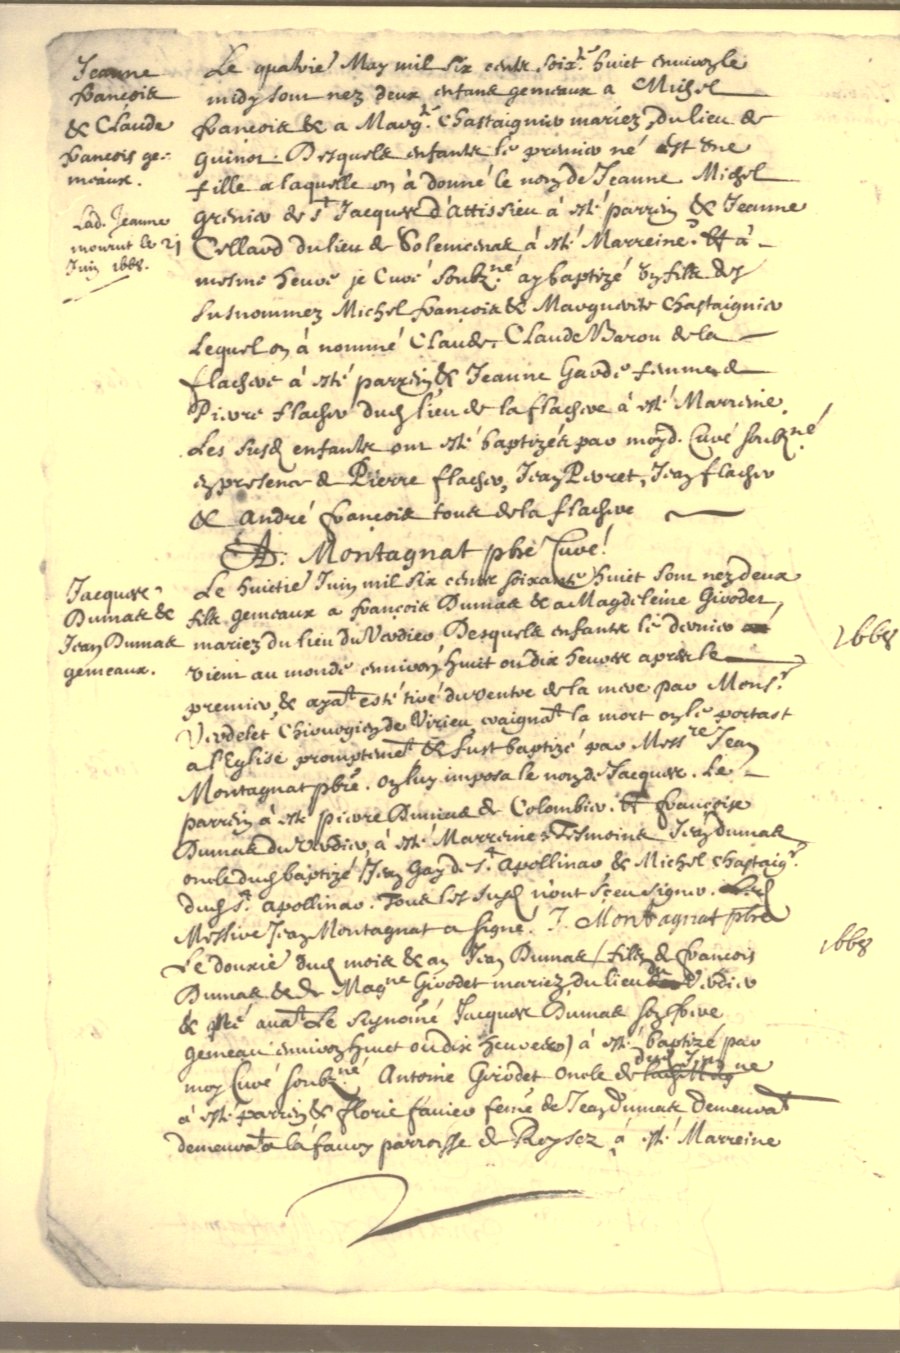 Jeanne
françoise
& Claude
françois ge-
meaux.
Lad. Jeanne
mourut le 21
Juin 1668.
Le quatrie May mil six cents soix.te huict environ le
midy sont nez deux enfans gemeaux a Michel
françois & a Marg.te Chastaignier mariez, du lieu de
Desquels enfants le premier né est une
fille a laquelle on à donné le nom de Jeanne Michel
grenier de s.t Jacques d'Attissieu à esté parrein & Jeanne
Cellard du lieu de Solemenas à esté Marreine. Et à
mesme heure je Curé soubz.né ay baptizé un fils des
susnommez Michel françois & Marguerite Chastaignier
Lequel on à nommé Claude. Claude Barou de la
flachere à esté parrein & Jeanne Garde femme de
Pierre flacher dud. lieu de la flachere à esté Marreine.
Les susd. enfants ont esté baptizés par moyd. Curé soubz.né
en presence de Pierre flacher, Jean Perret, Jean flacher
& André françois tous de la flachere
A. Montagnat pbre Curé!
Jacques
Dumas &
Jean Dumas
gemeaux.
Le huictie Juin mil six cents soixante huict sont nez deux
fils gemeaux a françois Dumas & a Magdeleine Girodet,
mariez du lieu du Verdier Desquels enfants le dernier
vient au monde environ huit ou dix heures apres le
premier, & ayat esté tiré du ventre de la mere par Mons.r
Verdelet Chirurgien de Virieu craignat la mort on le portast
a l'Eglise promptemet & fust baptizé par Messre Jean
Montagnat pbre. on luy imposa le nom de Jacques. Le
parrein à esté pierre Dumas de Colombier. Et françoise
Dumas du Verdier, à esté Marreine. Tesmoins Jean Dumas
oncle dud. baptizé, Jean Gay de S.t Apollinar & Michel chastaig.r
dud. S.t Apollinar. Tous les susd. n'ont sceu signer.
Messire Jean Montagnat a signé. J. Montagnat pbre
1668
Le douzie dud. mois & an Jean Dumas (fils de françois
Dumas & de Magne Girodet mariez du lieu du Verdier
& né avat le susnomé Jacques Dumas son frere
gemeau environ huict ou dix heures) à esté baptizé par
moy Curé soubz.né, Antoine Girodet oncle dud. Jean
à esté parrein & florie fanier feme de Jean Dumas demeurat
demeurat a la faury parroisse de Roysez à esté Marreine
1668